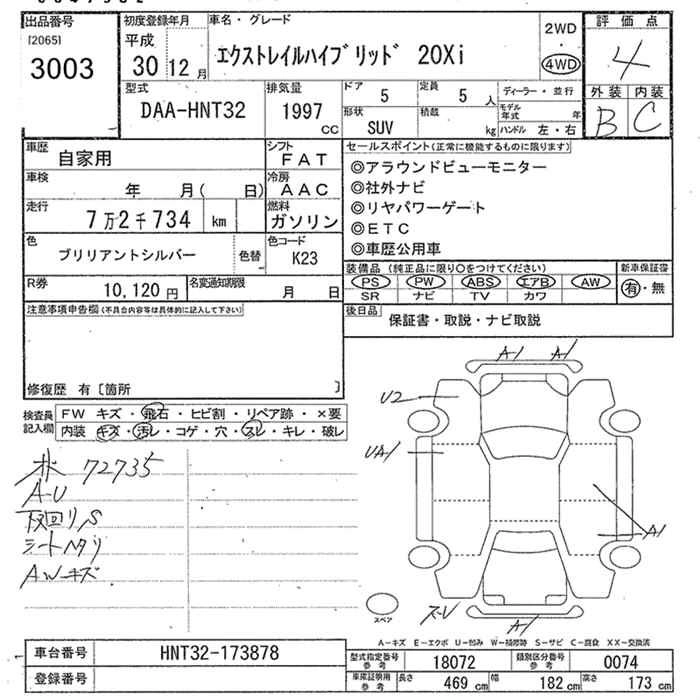 出品番号
[2065]
3003
初度登録年月
平成
30 12月
車名・グレード
エクストレイルハイブリッド 20Xi
2WD
・
4WD
評価点
4
外装 内装
B C
型式
DAA-HNT32
排気量
1997
cc
ドア
5
定員
5 人
ディーラー・並行
形状
SUV
積載
kg
モデル年式
年
ハンドル 左・右
車歴
自家用
シフト
FAT
車検
年 月( 日)
冷房
AAC
走行
7万2千734 km
燃料
ガソリン
色
ブリリアントシルバー
色替
色コード
K23
R券
10,120 円
名変通知期限
月 日
セールスポイント(正常に機能するものに限ります)
◎アラウンドビューモニター
◎社外ナビ
◎リヤパワーゲート
◎ETC
◎車歴公用車
装備品 (純正品に限り○をつけてください)
新車保証書
PS PW ABS エアB AW
有・無
SR ナビ TV カワ
後日品
保証書・取説・ナビ取説
注意事項申告欄(不具合内容等は具体的に記入して下さい)
修復歴 有〔箇所 〕
検査員記入欄
FW キズ・飛石・ヒビ割・リペア跡・×要
内装 キズ・汚レ・コゲ・穴・スレ・キレ・破レ
72735
A-U
下回りS
シートヘタリ
AWキズ
A1 A1
U2
UA1
A1
A1
スペア
A-キズ E-エクボ U-凹み W-補修跡 S-サビ C-腐食 XX-交換済
車台番号
HNT32-173878
登録番号
型式指定番号参考
18072
類別区分番号参考
0074
車庫証明用参考
長さ 469 cm
幅 182 cm
高さ 173 cm